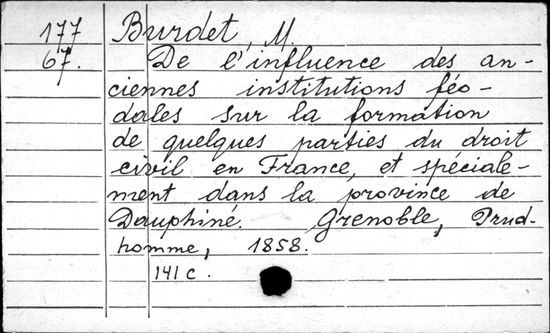 177 Burdet, M.
67. De l'influence des an-
ciennes institutions féo-
dales sur la formation
de quelques parties du droit
civil en France, et spéciale-
ment dans la province de
Dauphiné. Grenoble, Prud-
homme, 1858.
141 c.